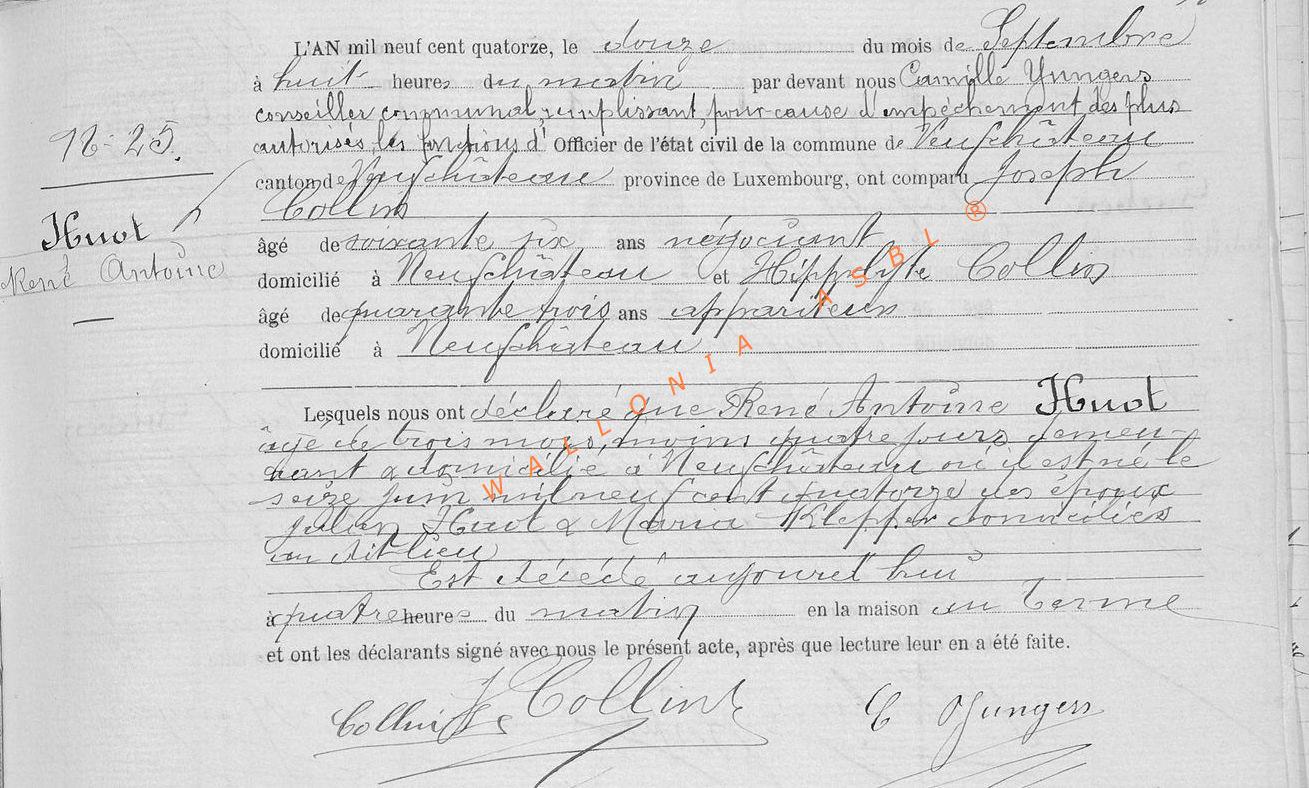 L'AN mil neuf cent quatorze, le douze du mois de Septembre
à huit heures du matin par devant nous Camille Yungers
conseiller communal, remplissant, pour cause d'empêchement des plus
autorisés, les fonctions d' Officier de l'état civil de la commune de Neufchâteau
18-25.
canton de Neufchâteau province de Luxembourg, ont comparu Joseph
Collin
Huot
René Antoine
âgé de soixante six ans négociant
domicilié à Neufchâteau et Hippolyte Collin
âgé de quarante trois ans appariteur
domicilié à Neufchâteau
Lesquels nous ont déclaré que René Antoine Huot
âgé de trois mois, moins quatre jours, demeu-
rant & domicilié à Neufchâteau où il est né le
seize juin mil neuf cent quatorze des époux
Julien Huot & Maria Klepper domiciliés
au dit lieu
Est décédé aujourd'hui
à quatre heures du matin en la maison au Terme
et ont les déclarants signé avec nous le présent acte, après que lecture leur en a été faite.
Collin J Collin C Yungers
WALLONIA ASBL ®